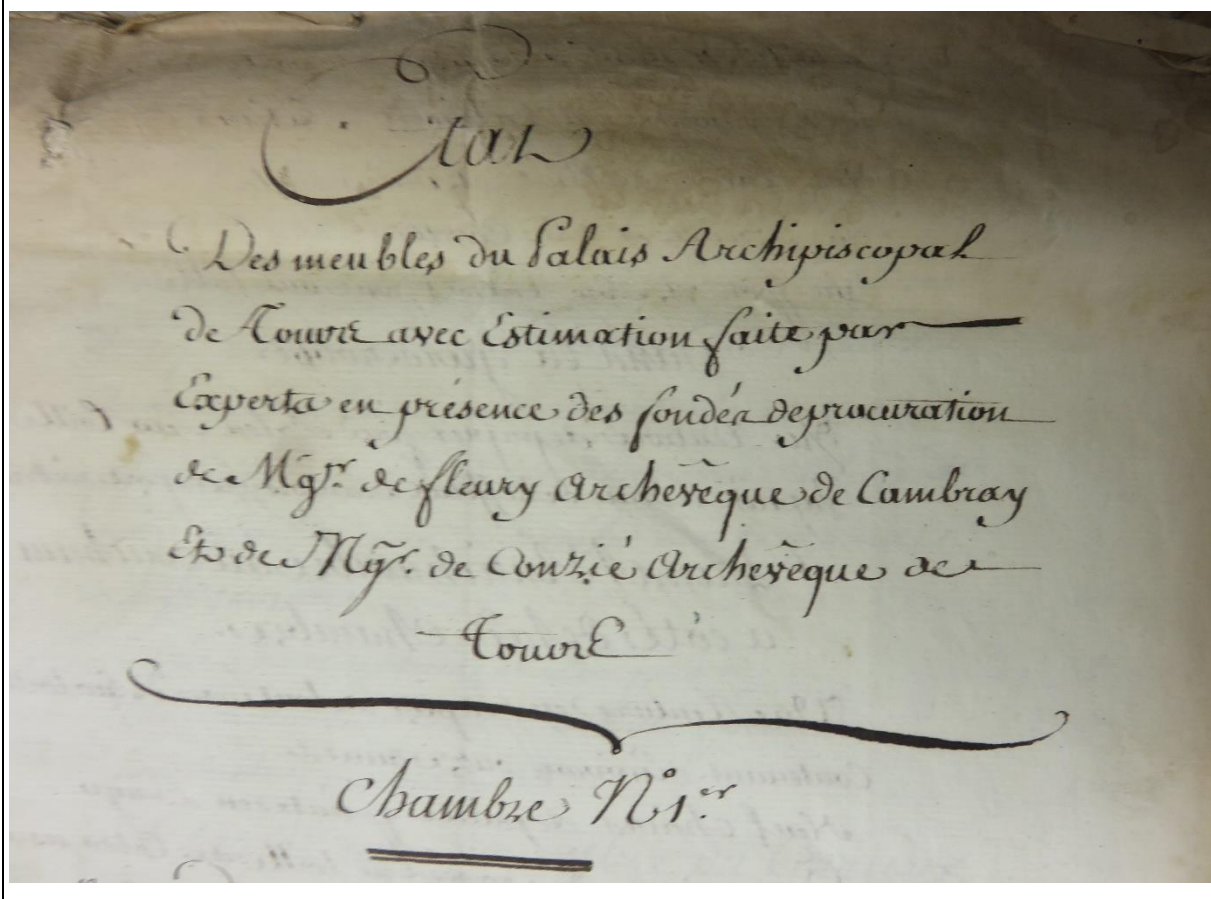 Etat
Des meubles du Palais Archipiscopal
de Tours avec Estimation faite par
Experts en présence des fondés de procuration
de Mgr. de fleury Archevêque de Cambray
Et de Mgr. de Conzié Archevêque de
Tours
Chambre N° 1.er